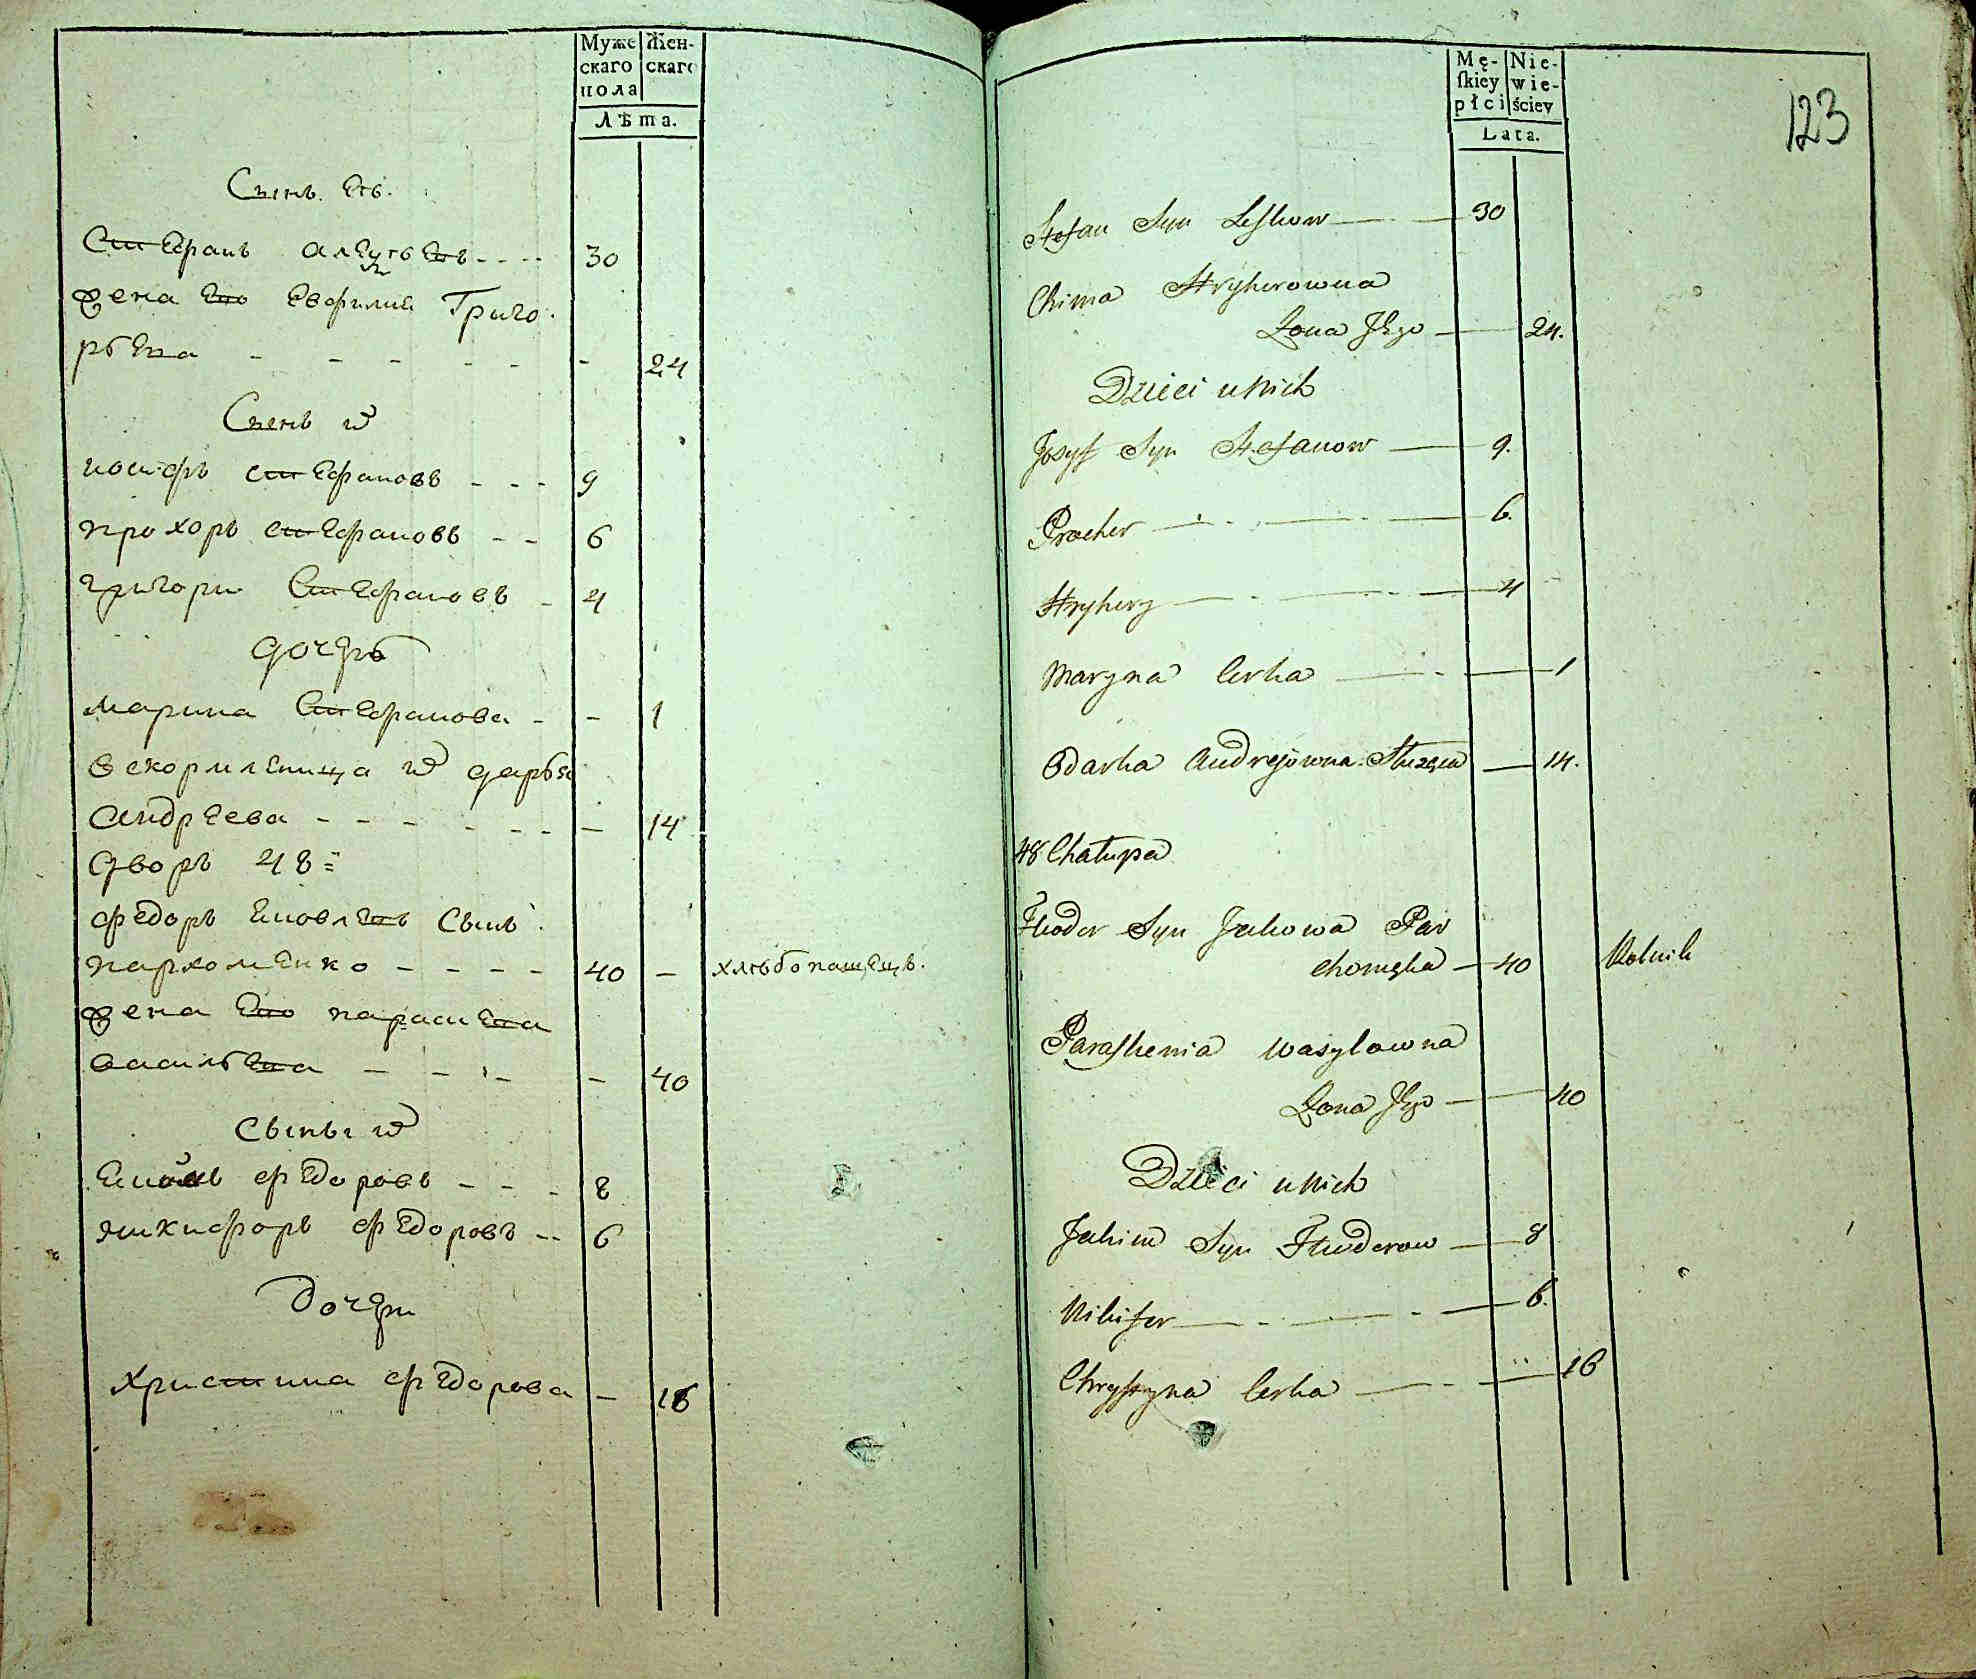 Муже
скаго
пола
Жен-
скаго
Лѣта.
Сынъ Ево.
Стефанъ Алексѣевъ 30
жена Ево Евфимия Григо
рьева 24
Сынъ
иосифъ стефановъ 9
прохоръ стефановъ 6
григори Стефановъ 4
дочерь
марина Стефанова 1
вскормленица дарья
андреева 14
дворъ 48
федоръ Яковлевъ Сынъ
пархоменко 40 хлѣбопашецъ.
жена Ево парасчева
васильева 40
Сыны
федоровъ 8
никифоръ федоровъ 6
дочери
христина федорова 16
123
Mę-
ſkiey
płci
Nie-
wie-
ściey
Lata.
Stefan Syn Leſkow 30
Chima Hryhorowna
Zona Jego 24.
Dzieci u Nich
Jozyf Syn Stefanow 9.
Prochor 6.
Hryhory 4
Maryna Corka 1
Odarka Andrejowna Służąca 14.
48 Chałupa
Fiodor Syn Jakowa Par
chomęka 40 Rolnik
Paraſkewia Wasylowna
Zona Jego 40
Dzieci u Nich
Jakim Syn Fiodorow 8
Nikifor 6.
Chryſtyna Corka 16